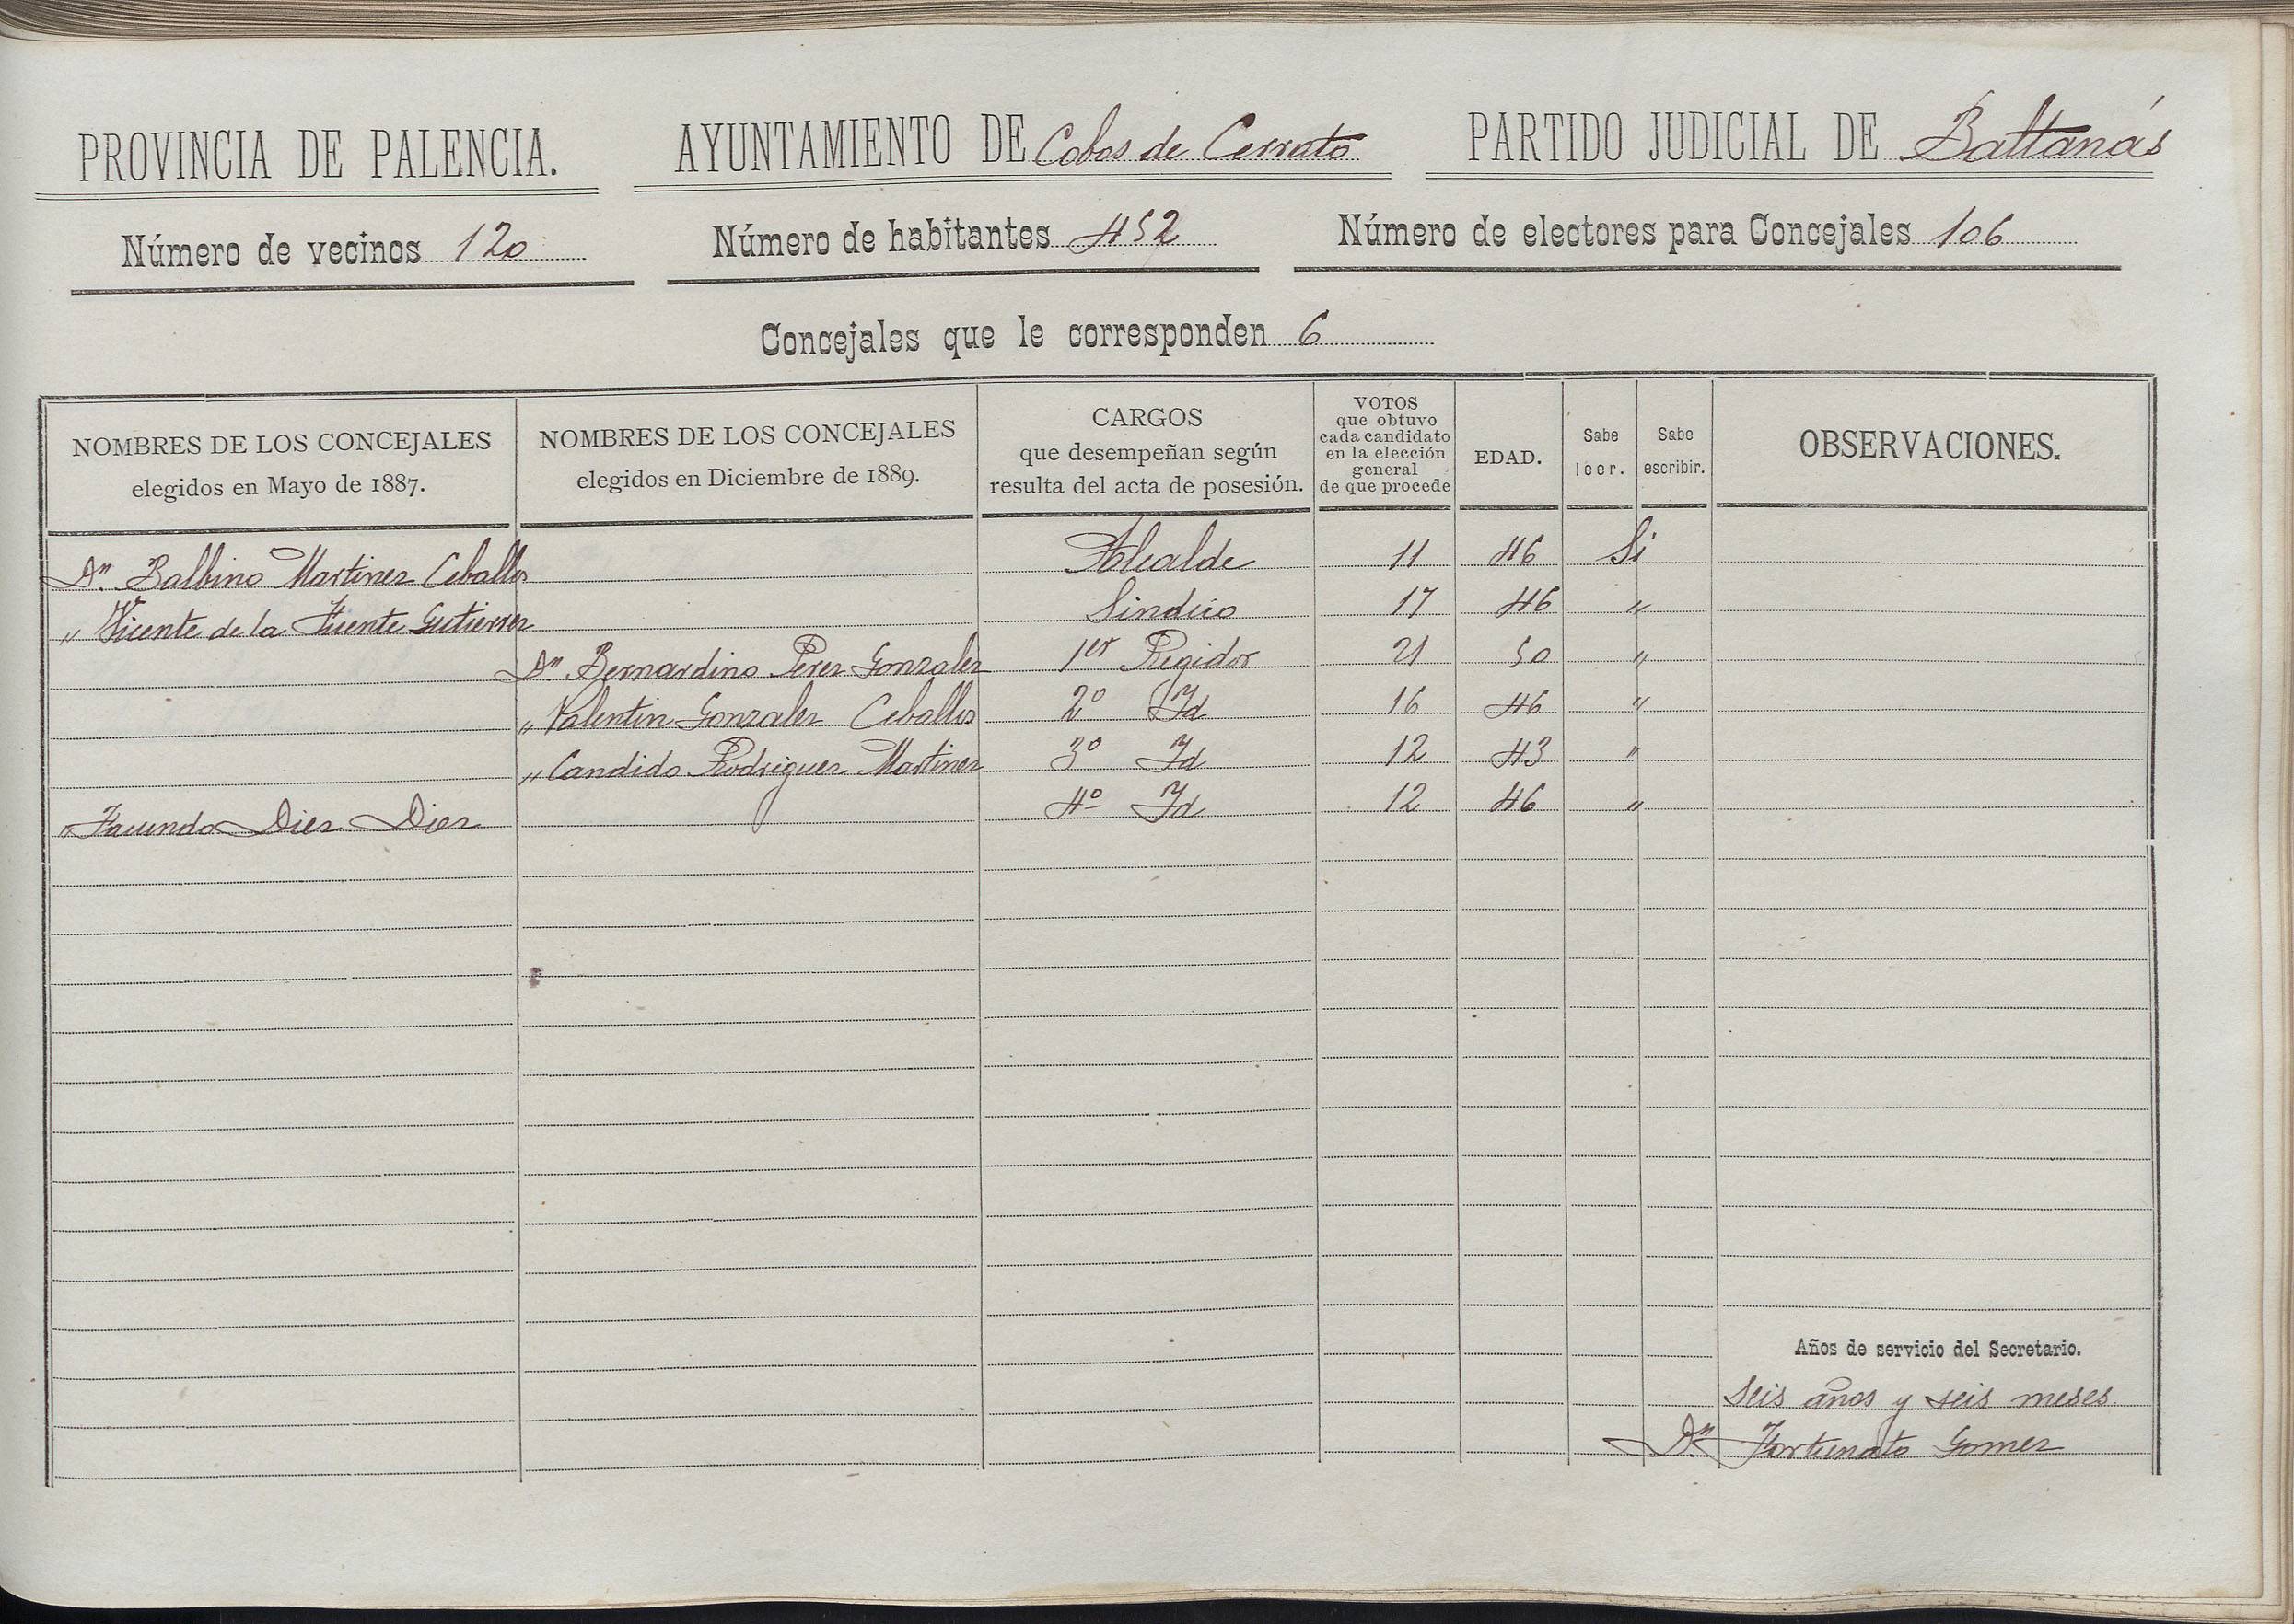 PROVINCIA DE PALENCIA. AYUNTAMIENTO DE Cobos de Cerrato PARTIDO JUDICIAL DE Baltanás
Número de vecinos 120 Número de habitantes 452 Número de electores para Concejales 106
Concejales que le corresponden 6
NOMBRES DE LOS CONCEJALES elegidos en Mayo de 1887. NOMBRES DE LOS CONCEJALES elegidos en Diciembre de 1889. CARGOS que desempeñan según resulta del acta de posesión. VOTOS que obtuvo cada candidato en la elección general de que procede EDAD. Sabe leer. Sabe escribir. OBSERVACIONES.
Dn. Balbino Martinez Ceballos Alcalde 11 46 Si
" Vicente de la Fuente Gutierrez Sindico 17 46 "
Dn. Bernardino Perez Gonzalez 1er Regidor 21 50 "
" Valentin Gonzalez Ceballos 2º Id 16 46 "
" Candido Rodriguez Martinez 3º Id 12 43 "
" Facundo Diez Diez 4º Id 12 46 "
Años de servicio del Secretario.
Seis años y seis meses.
Dn. Fortunato Gomez